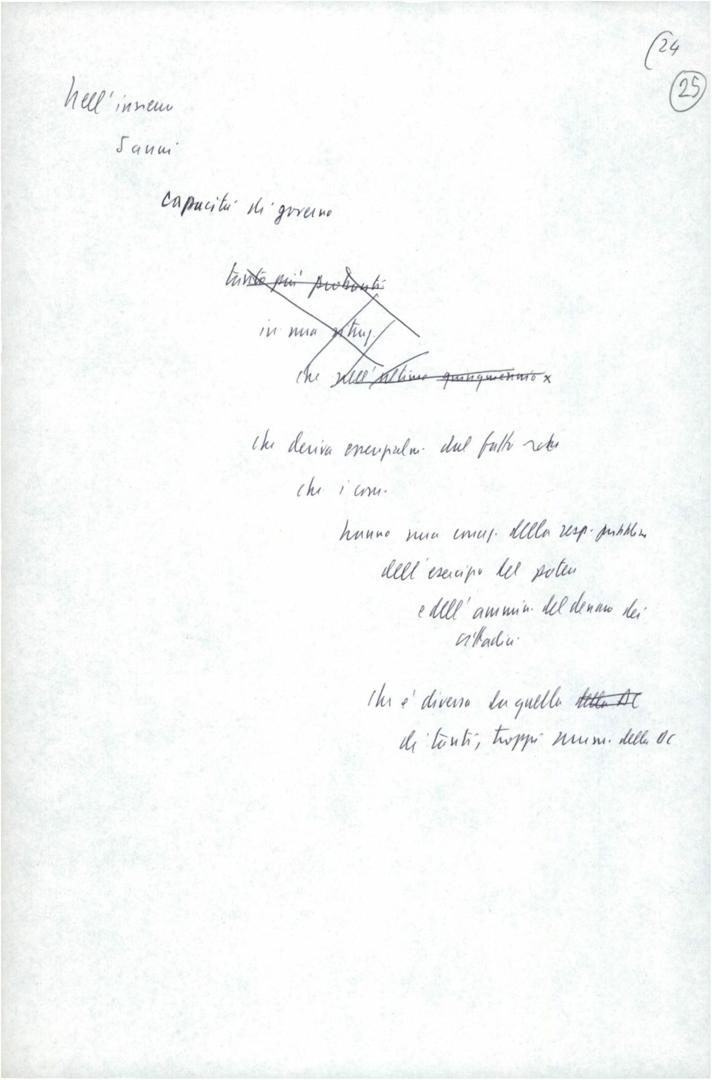 (24
25
Nell'insieme
5 anni
capacità di governo
tanto più probanti
in una situaz.
che nell'ultimo quinquennio x
che deriva essenzialm. dal fatto
che i com.
hanno una concez. della resp. pubblica
dell'esercizio del potere
e dell'ammin. del denaro dei
cittadini.
che è diversa da quella della DC
di tanti, troppi della DC